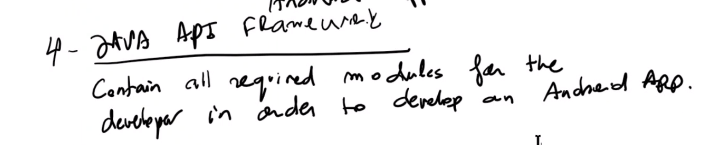 4- JAVA API Framework
Contain all required modules for the
developer in order to develop an Android App.